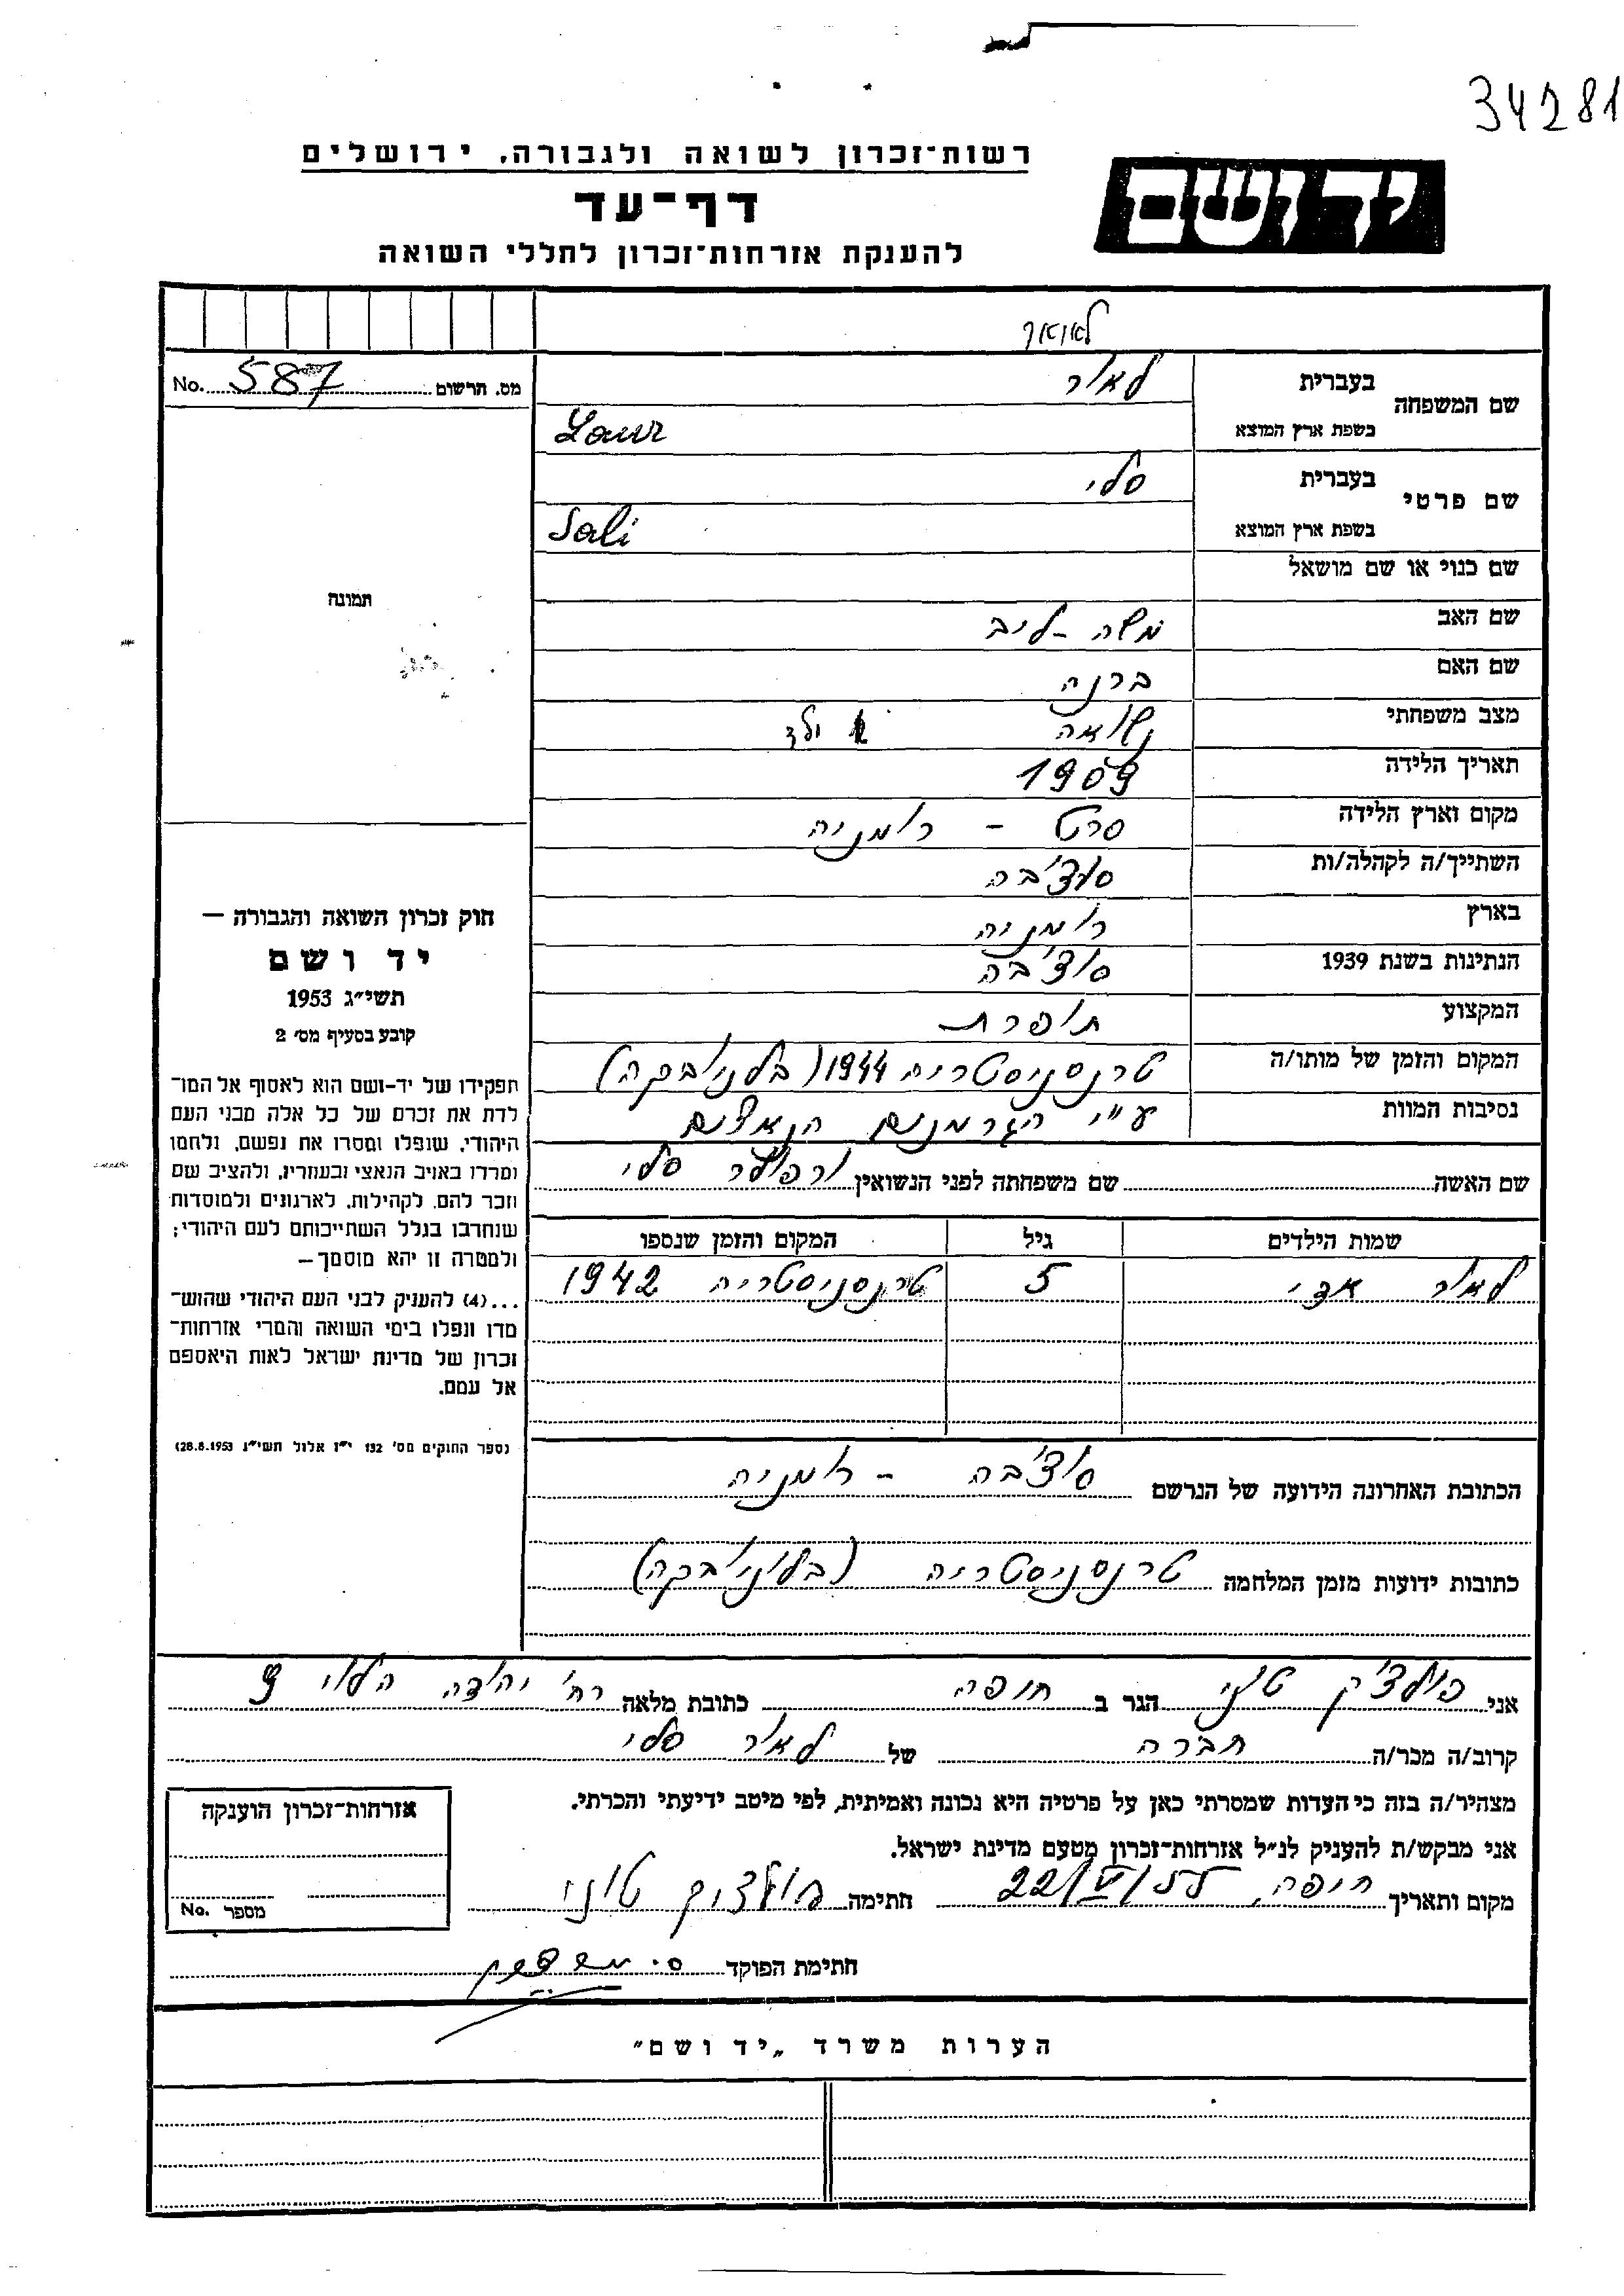 34281
רשות־זכרון לשואה ולגבורה, ירושלים
יד ושם
דף־עד
להענקת אזרחות־זכרון לחללי השואה
מס. תרשום No. 587
שם המשפחה
בעברית לאור
בשפת ארץ המוצא Laur
שם פרטי
בעברית סלי
בשפת ארץ המוצא Sali
שם כנוי או שם מושאל
שם האב משה - לייב
שם האם ברנה
מצב משפחתי נשואה ילד
תאריך הלידה 1909
מקום וארץ הלידה סרט - רומניה
השתייך/ה לקהלה/ות סוצ'בה
בארץ רומניה
הנתינות בשנת 1939 סוצ'בה
המקצוע תופרת
המקום והזמן של מותו/ה טרנסניסטריה 1944
נסיבות המוות ע"י הגרמנים הנאצים
שם האשה שם משפחתה לפני הנשואין סלי
שמות הילדים גיל המקום והזמן שנספו
לאור אדי 5 טרנסניסטריה 1942
הכתובת האחרונה הידועה של הנרשם סוצ'בה - רומניה
כתובות ידועות מזמן המלחמה טרנסניסטריה
תמונה
חוק זכרון השואה והגבורה —
יד ושם
תשי״ג 1953
קובע בסעיף מס׳ 2
תפקידו של יד-ושם הוא לאסוף אל המו־
לדת את זכרם של כל אלה מבני העם
היהודי, שנפלו ומסרו את נפשם, נלחמו
ומרדו באויב הנאצי ובעוזריו, ולהציב שם
וזכר להם, לקהילות, לארגונים ולמוסדות
שנחרבו בגלל השתייכותם לעם היהודי;
ולמטרה זו יהא מוסמך—
...(4) להעניק לבני העם היהודי שהוש־
מדו ונפלו בימי השואה והמרי אזרחות־
זכרון של מדינת ישראל לאות היאספם
אל עמם.
(ספר החוקים מס׳ 132 י״ז אלול תשי״ג 28.8.1953)
אני טוני הגר ב חיפה כתובת מלאה רח' יהודה הלוי 9
קרוב/ה מכר/ה חברה של לאור סלי
מצהיר/ה בזה כי העדות שמסרתי כאן על פרטיה היא נכונה ואמיתית, לפי מיטב ידיעתי והכרתי.
אני מבקש/ת להעניק לנ״ל אזרחות־זכרון מטעם מדינת ישראל.
מקום ותאריך חיפה, 22/VI/55 חתימה טוני
חתימת הפוקד
אזרחות־זכרון הוענקה
מספר No.
הערות משרד „יד ושם"